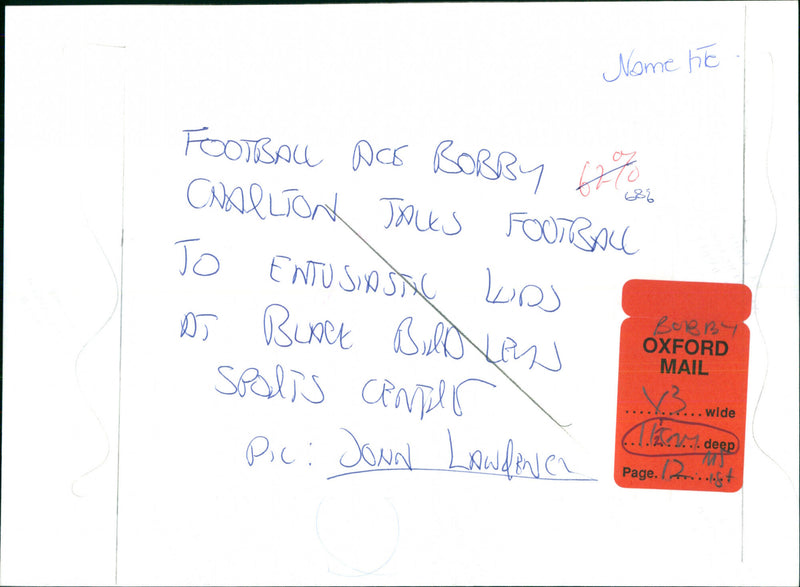 Name
FOOTBALL ACE BOBBY
62%
686
CHARLTON TALKS FOOTBALL
TO ENTUSIASTIC KIDS
AT BLACK BIRD LEYS
SPORTS CENTRE
PIC: JOHN LAWRENCE
BOBBY
OXFORD
MAIL
........... wide
........... deep
Page. 12